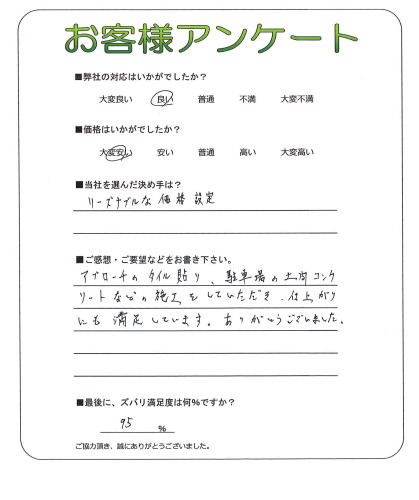 お客様アンケート
■弊社の対応はいかがでしたか?
大変良い 良い 普通 不満 大変不満
■価格はいかがでしたか?
大変安い 安い 普通 高い 大変高い
■当社を選んだ決め手は?
リーズナブルな価格設定
■ご感想・ご要望などをお書き下さい。
アプローチのタイル貼り、駐車場の土間コンク
リートなどの施工をしていただき、仕上がり
にも満足しています。ありがとうございました。
■最後に、ズバリ満足度は何%ですか?
95 %
ご協力頂き、誠にありがとうございました。